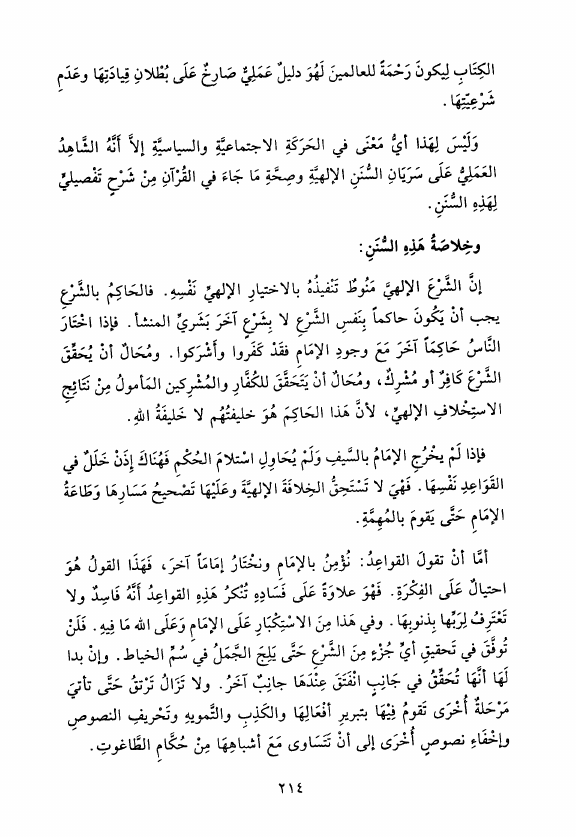 الكِتَابِ لِيكونَ رَحْمَةً للعالمينَ لَهُوَ دليلٌ عَمَلِيٌّ صَارِخٌ عَلَى بُطْلانِ قِيادَتِهَا وعَدَمِ
شَرْعِيّتِهَا .
وَلَيْسَ لِهَذا أيُّ مَعْنَى في الحَرَكَةِ الاجتماعيَّةِ والسياسيَّةِ إلاَّ أَنَّهُ الشَّاهِدُ
العَمَلِيُّ عَلَى سَرَيَانِ السُّنَنِ الإلهيَّةِ وصِحَّةِ مَا جَاءَ في القُرْآنِ مِنْ شَرْحٍ تَفْصيليٍّ
لِهَذِهِ السُّنَنِ .
وخِلاصَةُ هَذِهِ السُّنَنِ :
إنَّ الشَّرْعَ الإلهيَّ مَنُوطٌ تَنْفيذُهُ بالاختيارِ الإلهيِّ نَفْسِهِ . فالحَاكِمُ بالشَّرْعِ
يجب أنْ يَكُونَ حاكماً بِنَفسِ الشَّرْعِ لا بِشَرْعٍ آخَرَ بَشَريِّ المنشأ . فإذا اخْتَارَ
النَّاسُ حَاكِمَاً آخَرَ مَعَ وجودِ الإمَامِ فقَدْ كَفَروا وأَشْرَكوا . ومُحَالٌ أنْ يُحَقِّقَ
الشَّرْعَ كَافِرٌ أو مُشْرِكٌ، ومُحَالٌ أنْ يَتَحَقَّقَ للكُفَّارِ والمُشْرِكين المَأمولُ مِنْ نَتَائِجِ
الاستِخْلافِ الإلهيِّ، لأنَّ هَذا الحَاكِمَ هُوَ خليفتُهُم لا خَليفَةُ اللهِ.
فإذا لَمْ يخْرُجِ الإمَامُ بالسَّيفِ وَلَمْ يُحَاولِ اسْتلامَ الحُكْمِ فَهُنَاكَ إذَنْ خَلَلٌ في
القَوَاعِدِ نَفْسِهَا. فَهْيَ لا تَسْتَحِقُّ الخِلافَةَ الإلهيَّةَ وعَلَيْهَا تَصْحيحُ مَسَارِهَا وَطَاعَةُ
الإمَامِ حَتَّى يَقومَ بالمُهِمَّةِ.
أمَّا أنْ تقولَ القواعِدُ: نُؤْمِنُ بالإمَامِ ونخْتَارُ إمَامَاً آخرَ، فَهَذا القولُ هُوَ
احتيالٌ عَلَى الفِكْرَةِ. فَهْوَ علاوَةً عَلَى فَسَادِهِ تُنْكرُ هَذِهِ القواعِدُ أنَّهُ فَاسِدٌ ولا
تَعْتَرِفُ لِرَبِّهَا بِذنوبِهَا . وفي هَذا مِنَ الاسْتِكْبَارِ عَلَى الإمَامِ وَعَلَى الله مَا فِيهِ. فَلَنْ
تُوفَّقَ في تَحقيقِ أيِّ جُزْءٍ مِنَ الشَّرعِ حَتَّى يَلِجَ الجَمَلُ في سُمِّ الخياط . وإنْ بدا
لَهَا أنَّهَا تُحَقِّقُ في جَانِبٍ انْفَتَقَ عِنْدَهَا جانِبٌ آخَرُ. ولا تَزَالُ تَرْتقُ حَتَّى تأتيَ
مَرْحَلةٌ أُخْرَى تَقومُ فِيْهَا بتبريرِ أفْعَالِهَا والكَذِبِ والتَّمويهِ وتَحْريفِ النصوصِ
وإخْفَاءِ نصوصٍ أُخْرَى إلى أنْ تَتَسَاوى مَعَ أشباهِهَا مِنْ حُكَّامِ الطَّاغوتِ.
٢١٤